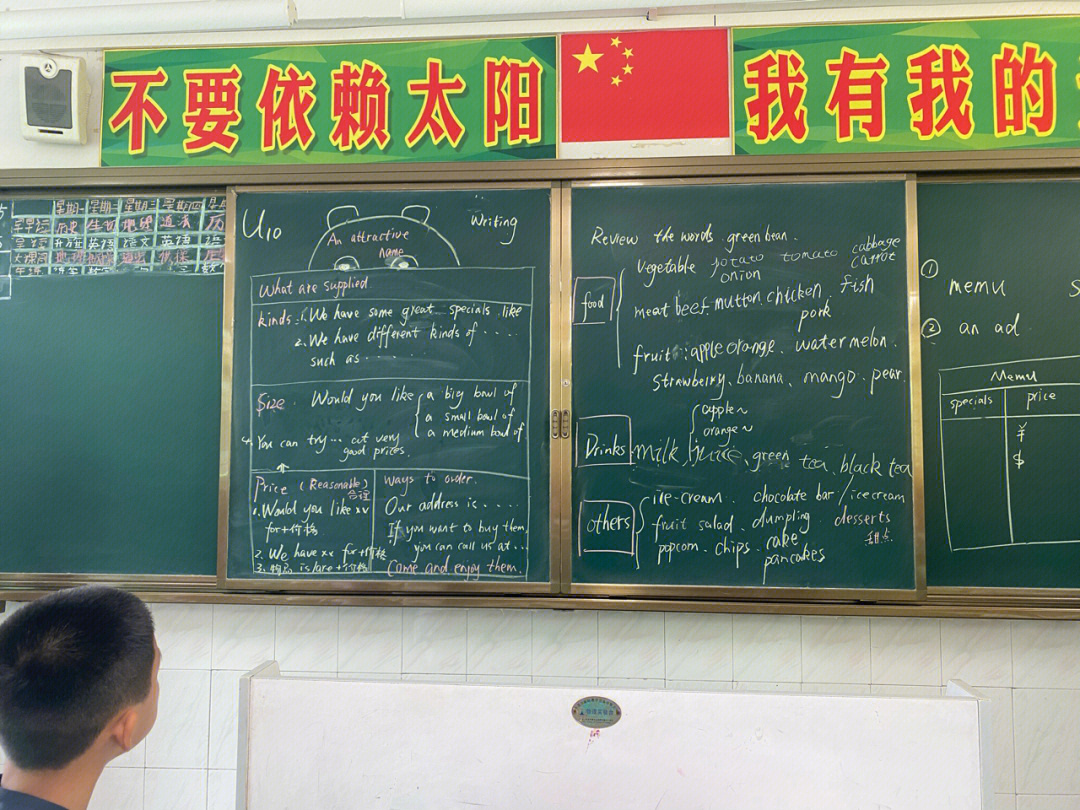 不要依赖太阳
我有我的
星期一 星期二 星期三 星期四
历史 生 地理 道法 历
英语 语文 英语
U10
Writing
An attractive
name
What are supplied
kinds: 1. We have some great specials like
2. We have different kinds of ·····
such as ·····
Size. Would you like
a big bowl of
a small bowl of
a medium bowl of
4. You can try ··· at very
good prices.
Price (Reasonable)
合理
1. Would you like xx
for+价格
2. We have xx for+价格
3. 物品 is/are+价格
Ways to order.
Our address is ····
If you want to buy them,
you can call us at ···
Come and enjoy them.
Review the words. green bean.
food
vegetable potato tomato cabbage
onion carrot
meat beef. mutton. chicken. fish
pork
fruit: apple orange. watermelon.
strawberry. banana. mango. pear.
Drinks
milk. juice. green tea. black tea
apple~
orange~
others
ice-cream. chocolate bar/ice cream
fruit salad. dumpling. desserts
甜点
popcorn. chips. cake
pancakes
① memu
② an ad
Memu
specials price
¥
$